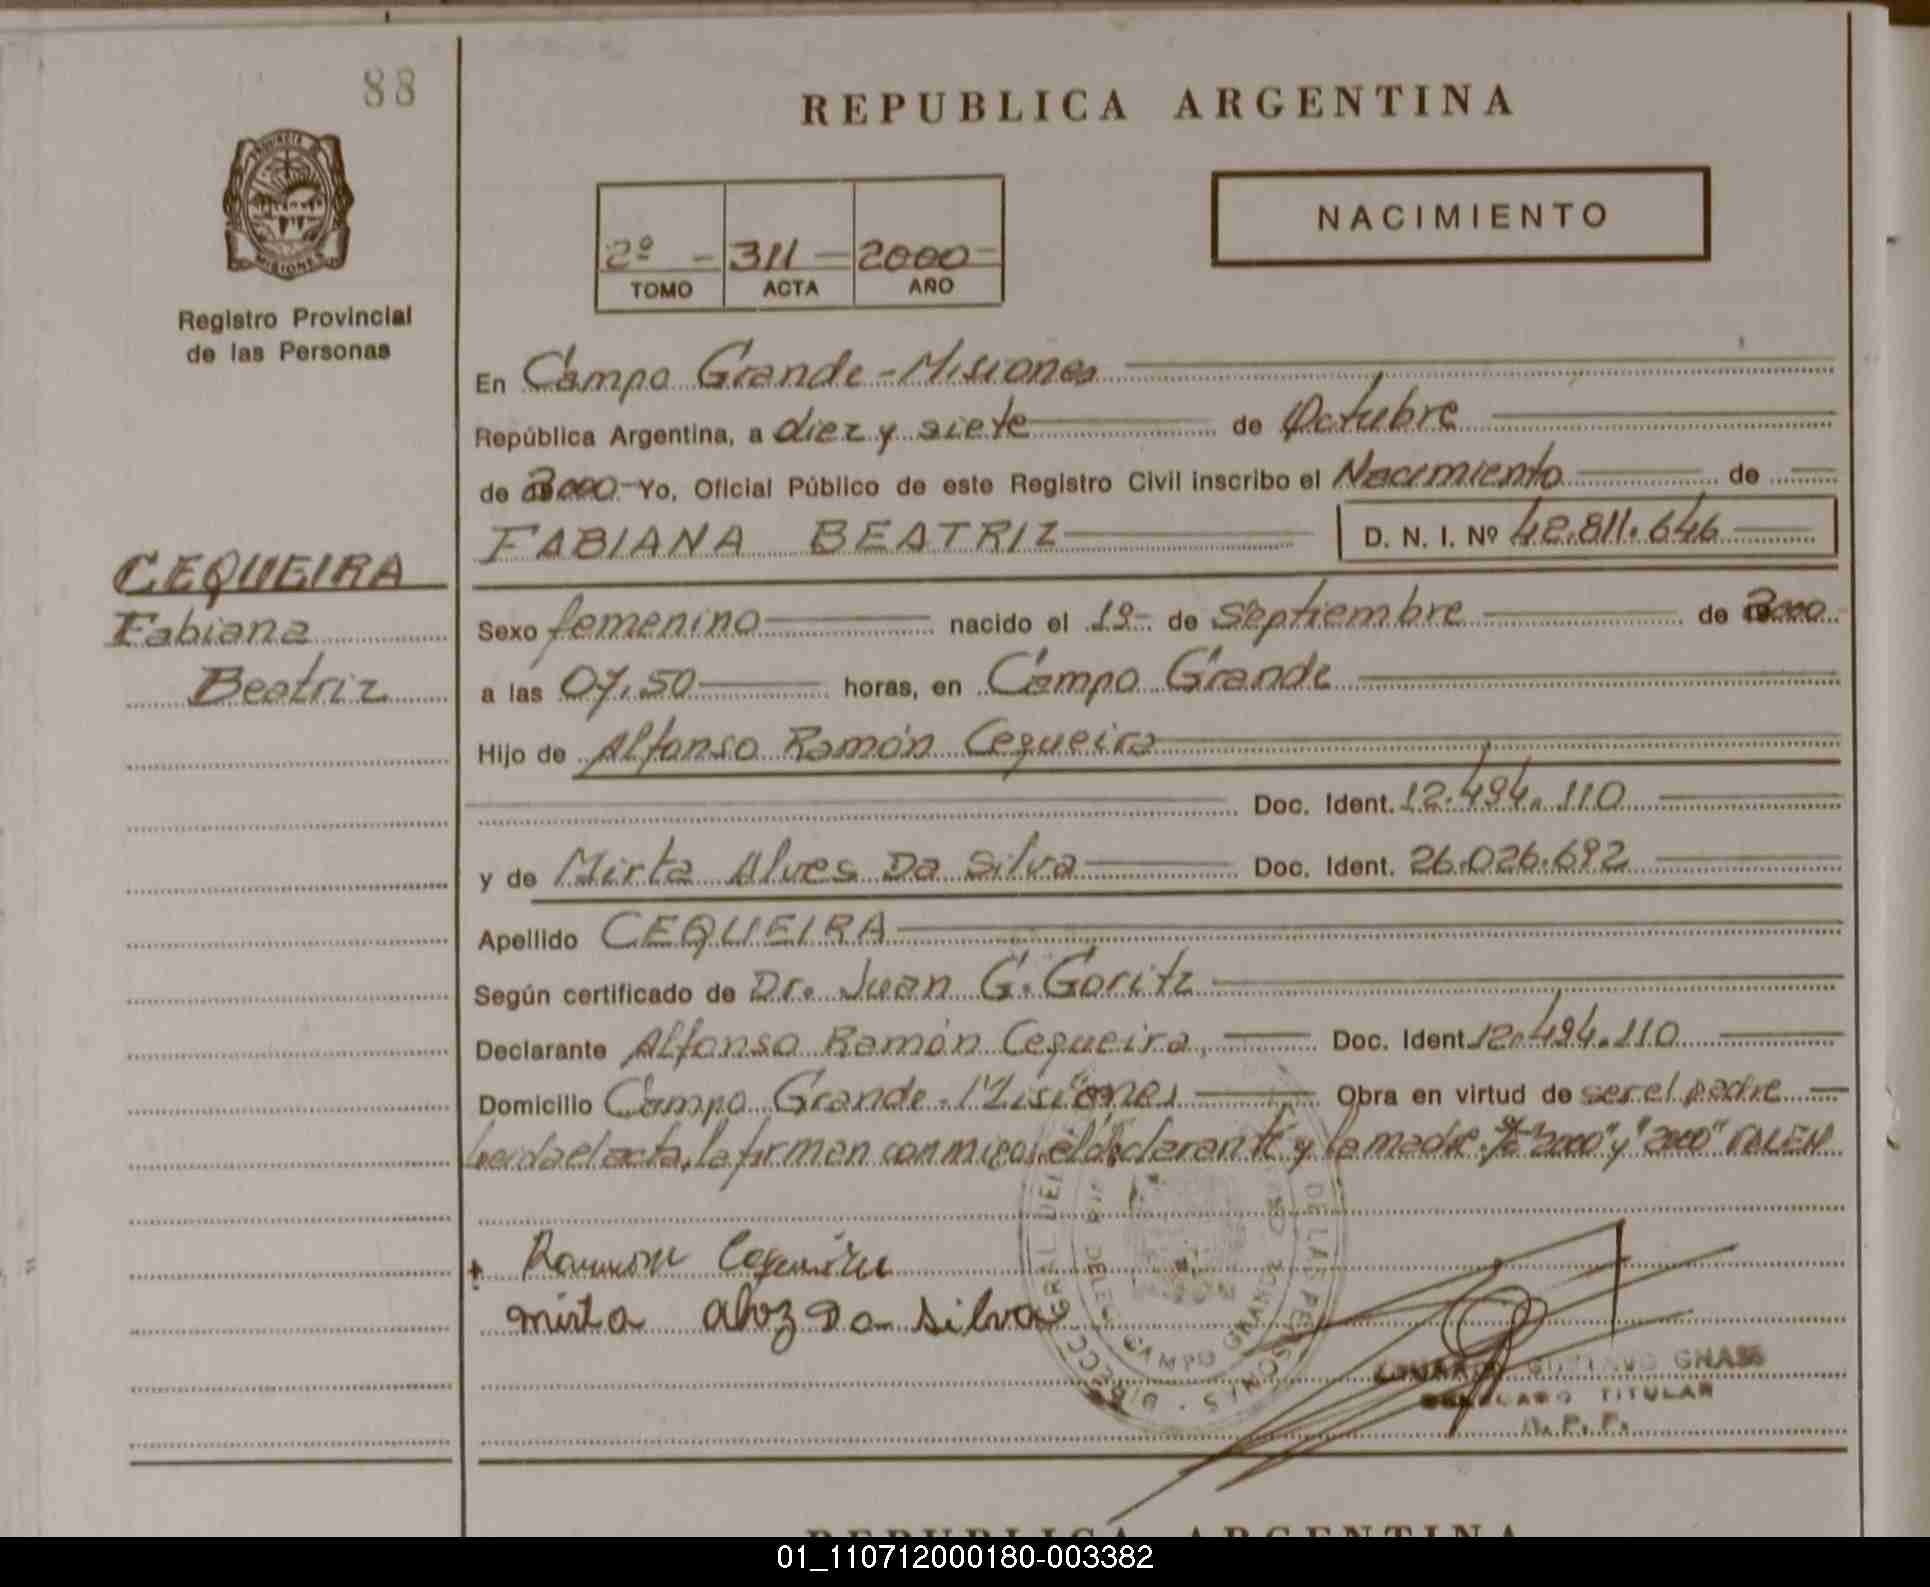 88
REPUBLICA ARGENTINA
NACIMIENTO
2º - 311 - 2000 -
TOMO ACTA AÑO
PROVINCIA DE MISIONES
Registro Provincial
de las Personas
En Campo Grande - Misiones
República Argentina, a diez y siete de Octubre
de 2000 - Yo, Oficial Público de este Registro Civil inscribo el Nacimiento de
FABIANA BEATRIZ D. N. I. Nº 42.811.646
CEQUEIRA
Fabiana
Beatriz
Sexo femenino nacido el 19 - de Septiembre de 2000
a las 07,50 horas, en Campo Grande
Hijo de Alfonso Ramón Cequeira
Doc. Ident. 12.494.110
y de Mirta Alves Da Silva Doc. Ident. 26.026.692
Apellido CEQUEIRA
Según certificado de Dr. Juan G. Goritz
Declarante Alfonso Ramón Cequeira, Doc. Ident. 12.494.110
Domicilio Campo Grande - Misiones Obra en virtud de ser el padre
Leida el acta, la firman conmigo, el declarante y la madre. "2000" y "2000" VALEN
Ramon Cequeira
mirta alvz Da silva
CAMPO GRANDE
DE LAS PERSONAS
GUSTAVO GNASS
DELEGADO TITULAR
R. P. P.
REPUBLICA ARGENTINA
01_110712000180-003382